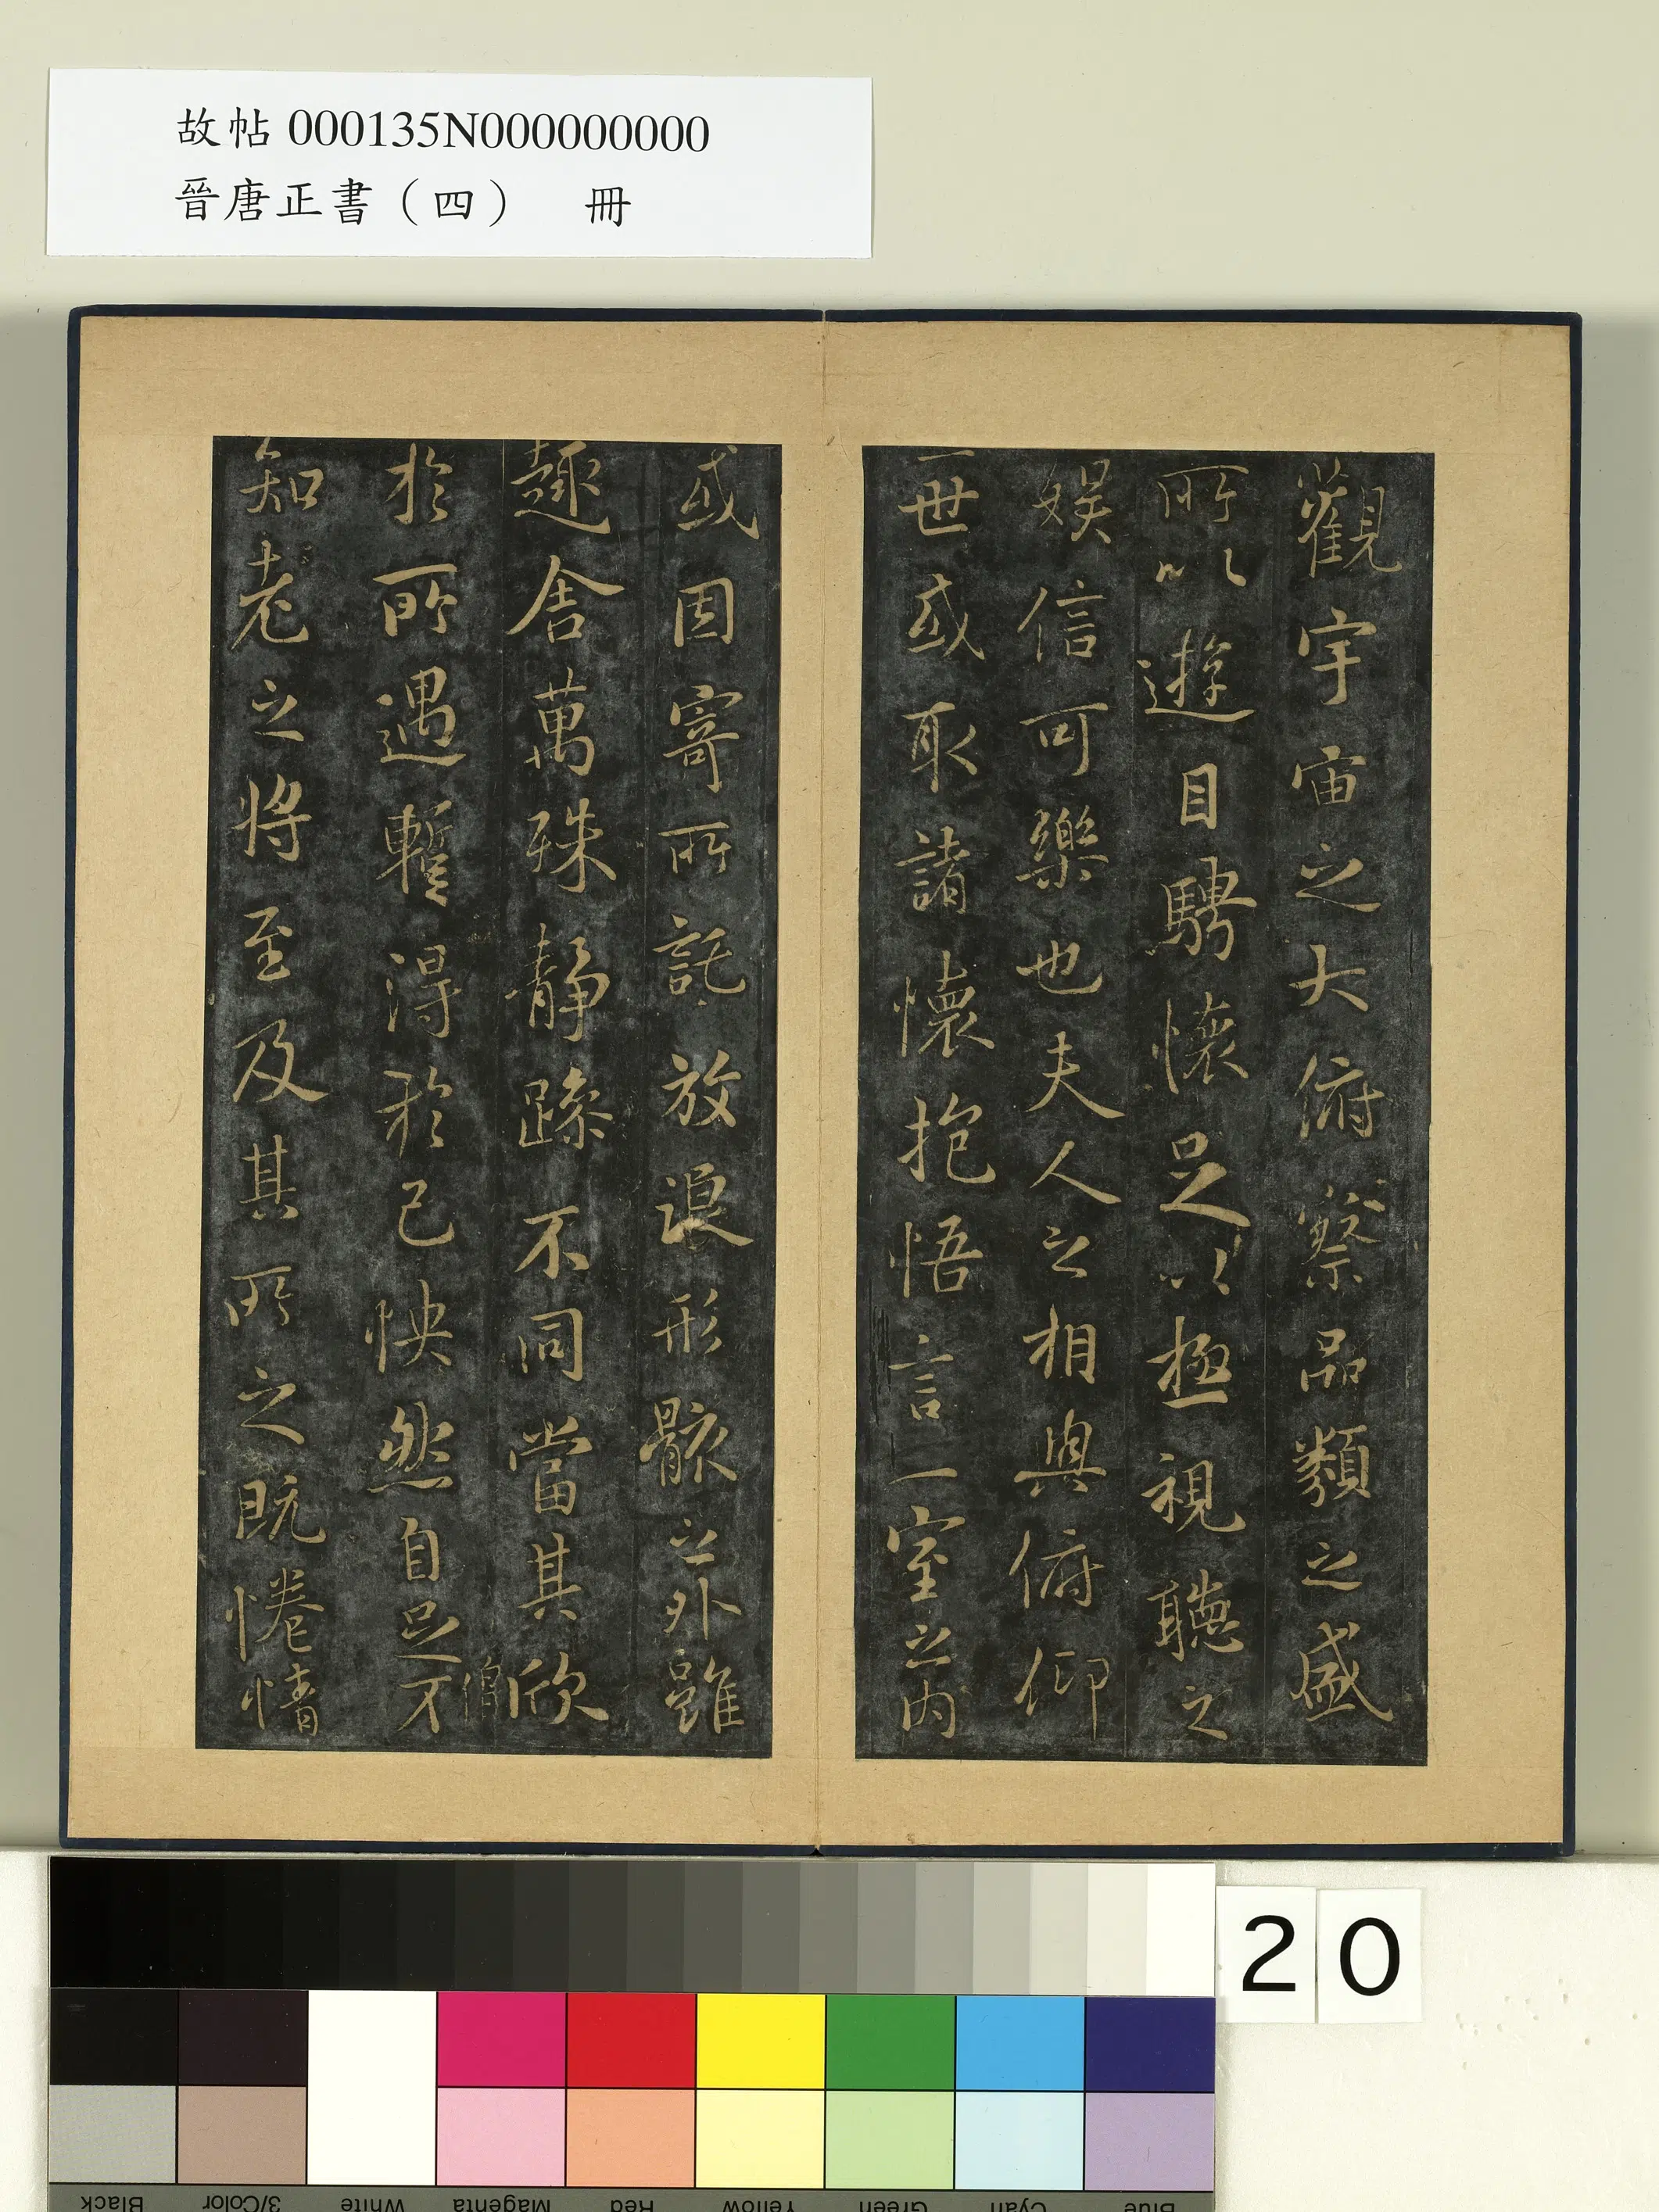 故帖 000135N000000000
晉唐正書（四） 冊
觀宇宙之大俯察品類之盛
所以遊目騁懷足以極視聽之
娛信可樂也夫人之相與俯仰
一世或取諸懷抱悟言一室之內
或因寄所託放浪形骸之外雖
趣舍萬殊靜躁不同當其欣
僧
於所遇暫得於己怏然自足不
知老之將至及其所之既惓情
20
Black
3/Color
White
Magenta
Red
Yellow
Green
Cyan
Blue